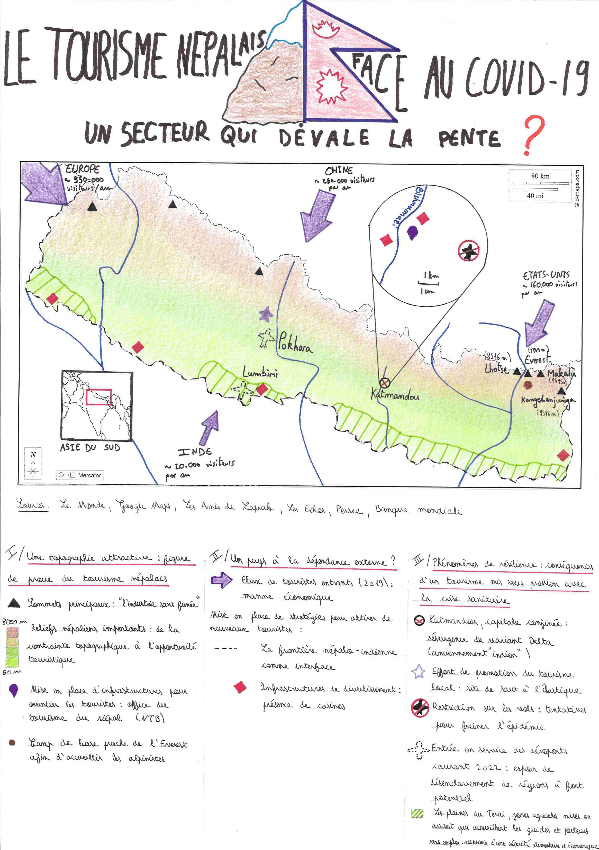 LE TOURISME NEPALAIS FACE AU COVID-19
UN SECTEUR QUI DÉVALE LA PENTE ?
EUROPE
~ 350000
visiteurs/an
CHINE
visiteurs
par an
80 km
40 mi
1 km
ETATS-UNIS
~ 160.000
visiteurs
par an
Everest
Lhotse
Makalu
Kangchenjunga
Pokhara
Lumbini
Katmandou
INDE
visiteurs
par an
ASIE DU SUD
N
Mercator
Sources : Le Monde, Google Maps, Les Amis de, Les Echos, Persée, Banque mondiale
I/ Une topographie attractive : figure
de proue du tourisme népalais
Sommets principaux : "l'industrie sans fumée"
Reliefs népaliens importants : de la
contrainte topographique à l'opportunité
touristique
Mise en place d'infrastructures pour
les touristes : office du
tourisme du népal (NTB)
Camp de base proche de l'Everest
afin d'accueillir les alpinistes
II/ Un pays à la dépendance externe ?
Flux de touristes entrants (2019) :
manne économique
Mise en place de stratégies pour attirer de
nouveaux touristes :
La frontière népalo-indienne
comme interface
Infrastructures de divertissement :
présence de casinos
III/ Phénomènes de résilience : conséquences
d'un tourisme mis sous pression avec
la crise sanitaire
Katmandou, capitale confinée :
résurgence du variant Delta
(anciennement "indien")
Effort de promotion du tourisme
local : site de saut à l'élastique
Restriction sur les vols : tentatives
pour freiner l'épidémie
Entrée en service des aéroports
courant 2022 : espoir de
désenclavement de régions à fort
potentiel
Les plaines du Teraï, zones agricoles mises en
qui accueillent les guides et porteurs
sans emploi : d'une sécurité alimentaire et économique